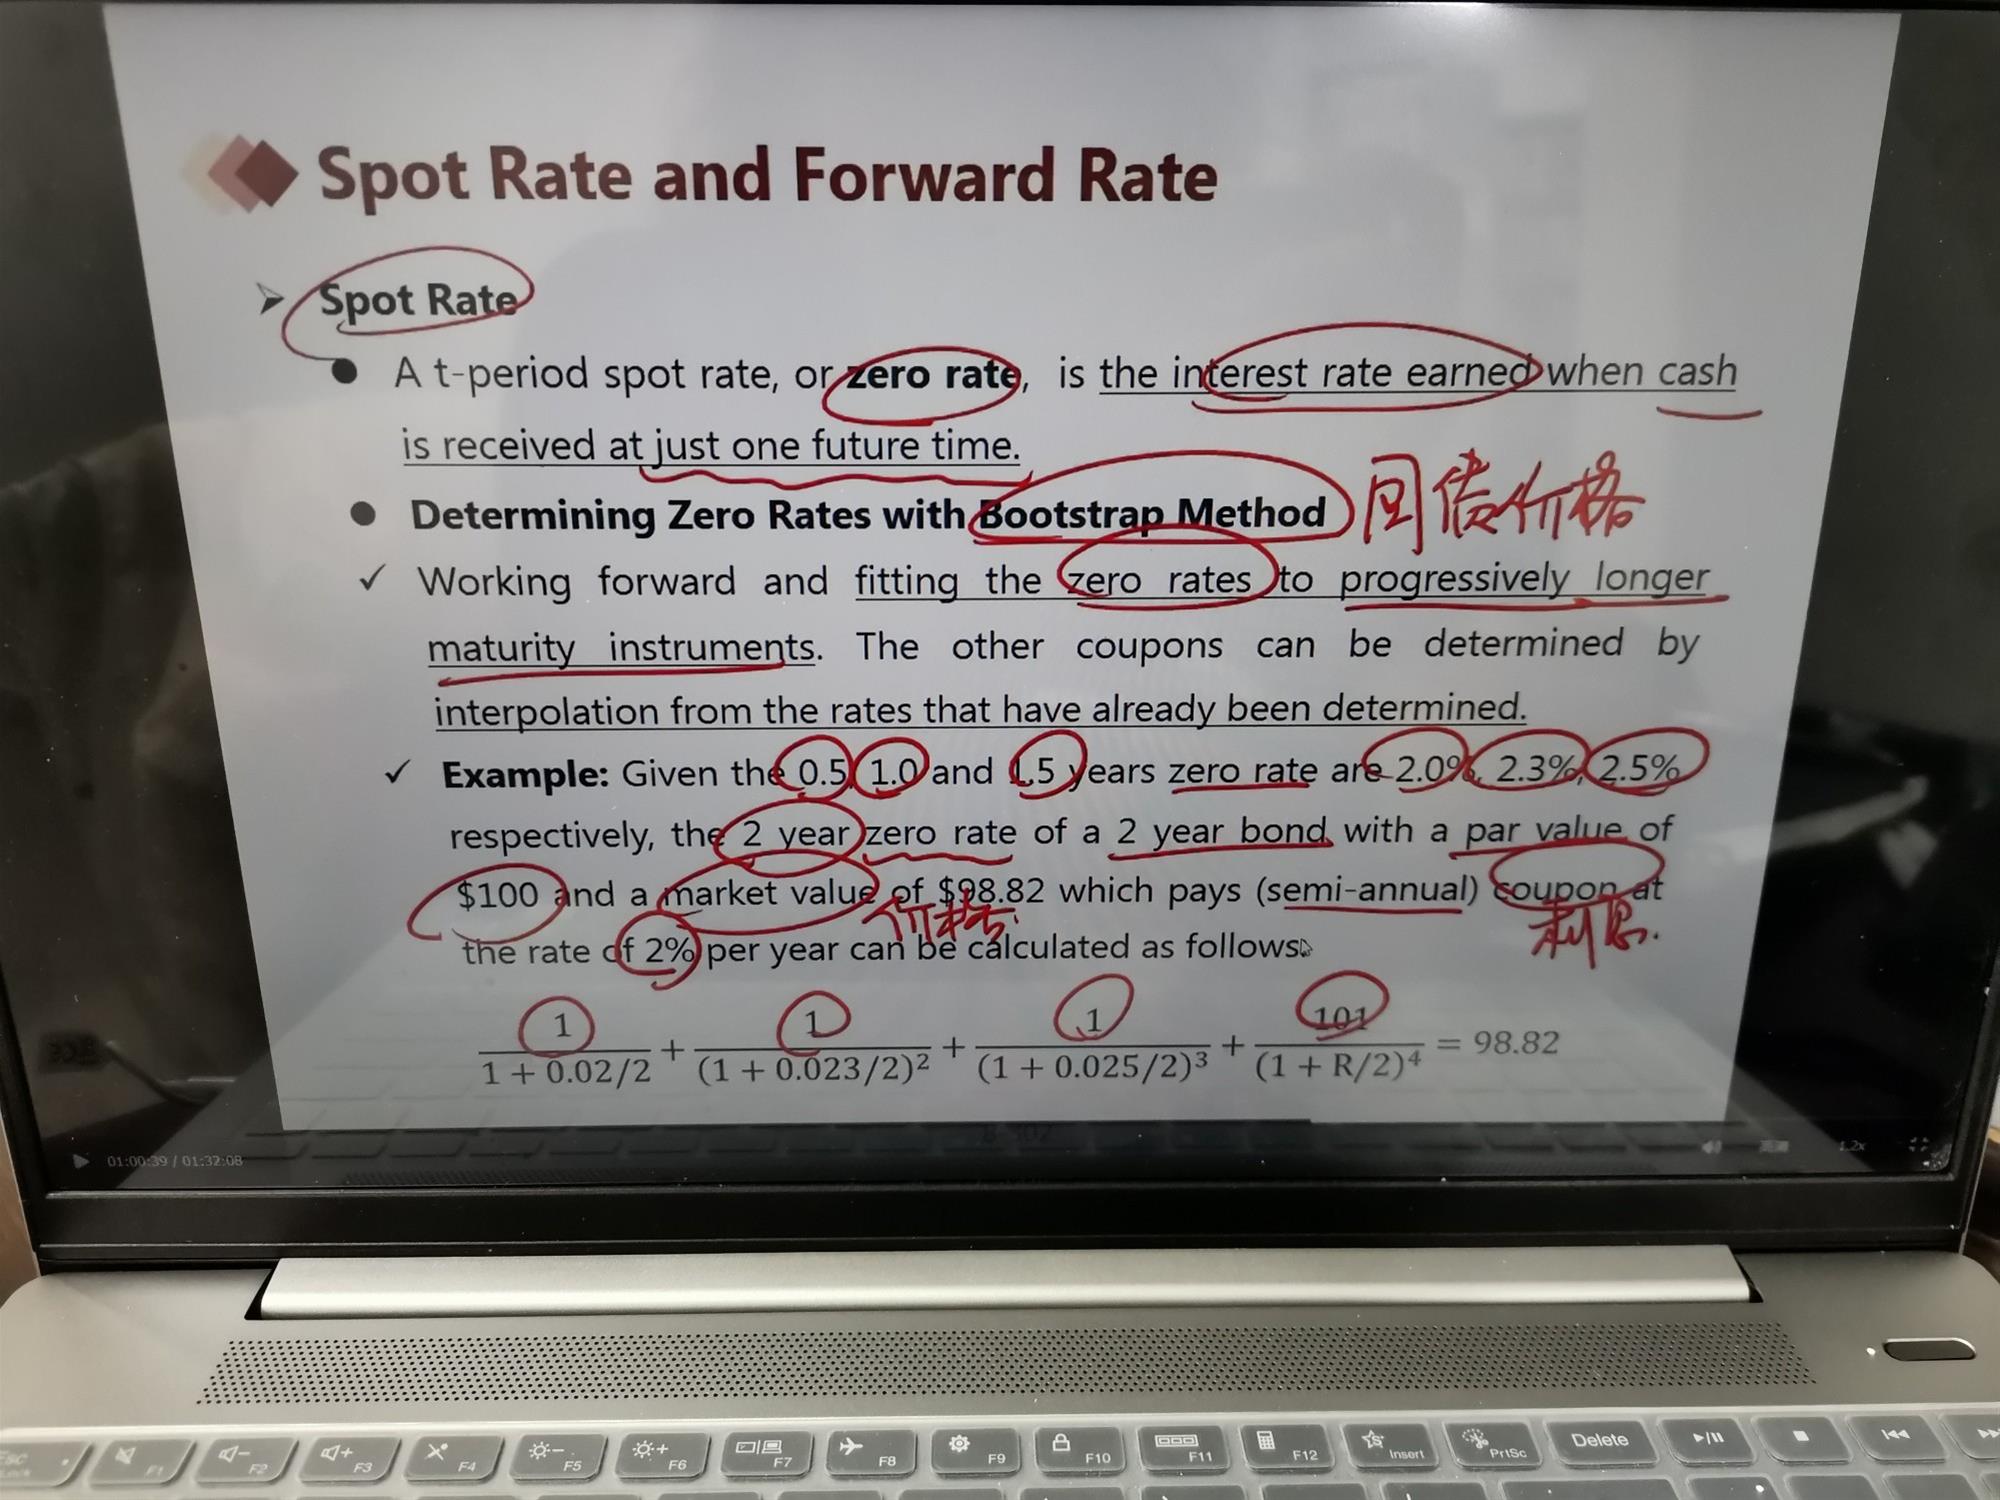 Spot Rate and Forward Rate
➢ Spot Rate
● A t-period spot rate, or zero rate, is the interest rate earned when cash
is received at just one future time.
● Determining Zero Rates with Bootstrap Method 债价格
✓ Working forward and fitting the zero rates to progressively longer
maturity instruments. The other coupons can be determined by
interpolation from the rates that have already been determined.
✓ Example: Given the 0.5, 1.0 and 1.5 years zero rate are 2.0%, 2.3%, 2.5%
respectively, the 2 year zero rate of a 2 year bond with a par value of
$100 and a market value of $98.82 which pays (semi-annual) coupon at
价格 利息.
the rate of 2% per year can be calculated as follows:
1/(1 + 0.02/2) + 1/(1 + 0.023/2)² + 1/(1 + 0.025/2)³ + 101/(1 + R/2)⁴ = 98.82
01:00:39 / 01:32:08 1.2x
F1 F2 F3 F4 F5 F6 F7 F8 F9 F10 F11 F12 Insert PrtSc Delete